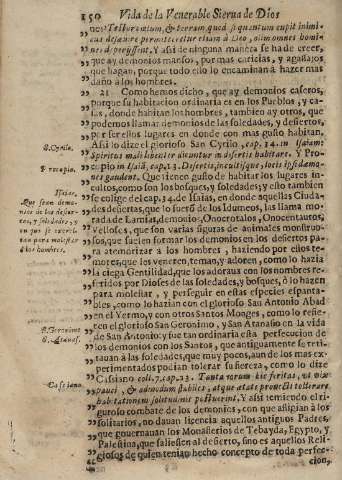 150 Vida de la Venerable Sierua de Dios
nos manera se ha de creer,
que ay demonios mansos, por mas caricias, y agasajos
que hagan, porque todo ello lo encaminan à hazer mas
daño à los hombres.
21 Como hemos dicho, que ay demonios caseros,
porque su habitacion ordinaria es en los Pueblos, y ca-
sas, donde habitan los hombres, tambien ay otros, que
podemos llamar demonios de las soledades, y desiertos,
por ser ellos lugares en donde con mas gusto habitan.
S.Cyrilo. Assi lo dize el glorioso San Cyrilo, cap. 14. in Isaiam:
Spiritus mali libenter dicuntur in desertis habitare. Y Pro-
Procopio. copio in Isai. cap. 13. Desertis, incultisque, locis ipsi dæmo-
nes gaudent. Que tienen gusto de habitar los lugares in-
Isaias. cultos, como son los bosques, y soledades; y esto tambien
Que sean demo- se colige del cap. 34. de Isaias, en donde aquellas Ciuda-
nios de los desier- des desiertas, que lo fuera los Idumeos, las llama mo-
tos, y soledades, y rada de Lamia, demonios, Onocrotalos, Onocentauros,
en que se exerci- Vellosos, que son varias figuras de animales monstruo-
tan para molestar sos, que suelen formar los demonios en los desiertos pa-
à los hombres. ra atemorizar à los hombres, haziendo por ellos te-
mores, que les veneren, teman, y adoren, como lo hazia
la ciega Gentilidad, que los adoraua con los nombres re-
feridos por Dioses de las soledades, y bosques, ò lo hazen
para molestar, y perseguir en estas especies espanta-
bles, como lo hizian con el glorioso San Antonio Abad
en el Yermo, y con otros Santos Monges, como lo refie-
S.Geronimo. ren el glorioso San Geronimo, y San Atanasio en la vida
S. Atanas. de San Antonio: y fue tan ordinaria esta persecucion de
los demonios con los Santos, que antiguamente se reti-
rauan à las soledades, que muy pocos, aun de los mas ex-
perimentados podian tolerar su fiereza, como lo dize
Casiano. Cassiano coll. 7. cap. 23. Tanta erat eorum feritas, ut vix
pauci, & admodum stabiles, atque ætate provecti tollerare
habitationem solitudinis possent. Y assi temiendo el ri-
guroso combate de los demonios, con que assigian à los
solitarios, no dauan licencia aquellos antiguos Padres,
que gouernauan los Monasterios de Tebayda, Egypto, y
Palestina, que saliessen al desierto, sino es aquellos Reli-
giosos de quien tenian hecho concepto de toda perfec-
cion,